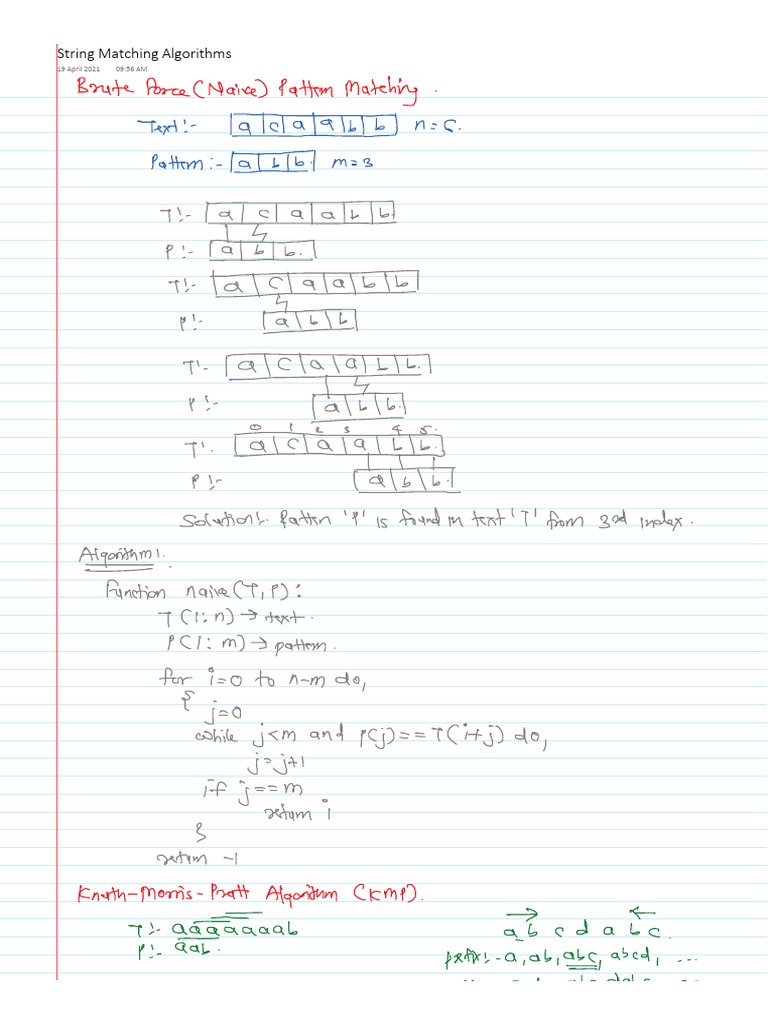 String Matching Algorithms
19 April 2021 09:56 AM
Brute Force (Naive) Pattern Matching.
Text:- a c a a b b n=6.
Pattern:- a b b. m=3
T:- a c a a b b
P:- a b b.
T:- a c a a b b
P:- a b b
T:- a c a a b b.
P:- a b b.
0 1 2 3 4 5.
T: a c a a b b.
P:- a b b.
Solution:- Pattern 'P' is found in text 'T' from 3rd index.
Algorithm:
Function naive(T, P):
T(1:n) → text.
P(1:m) → pattern.
for i=0 to n-m do,
{
j=0
while j<m and P(j)==T(i+j) do,
j=j+1
if j==m
return i
}
return -1
Knuth-Morris-Pratt Algorithm (KMP).
T:- aaaaaaaab a b c d a b c.
P:- aab. prefix:- a, ab, abc, abcd, ...